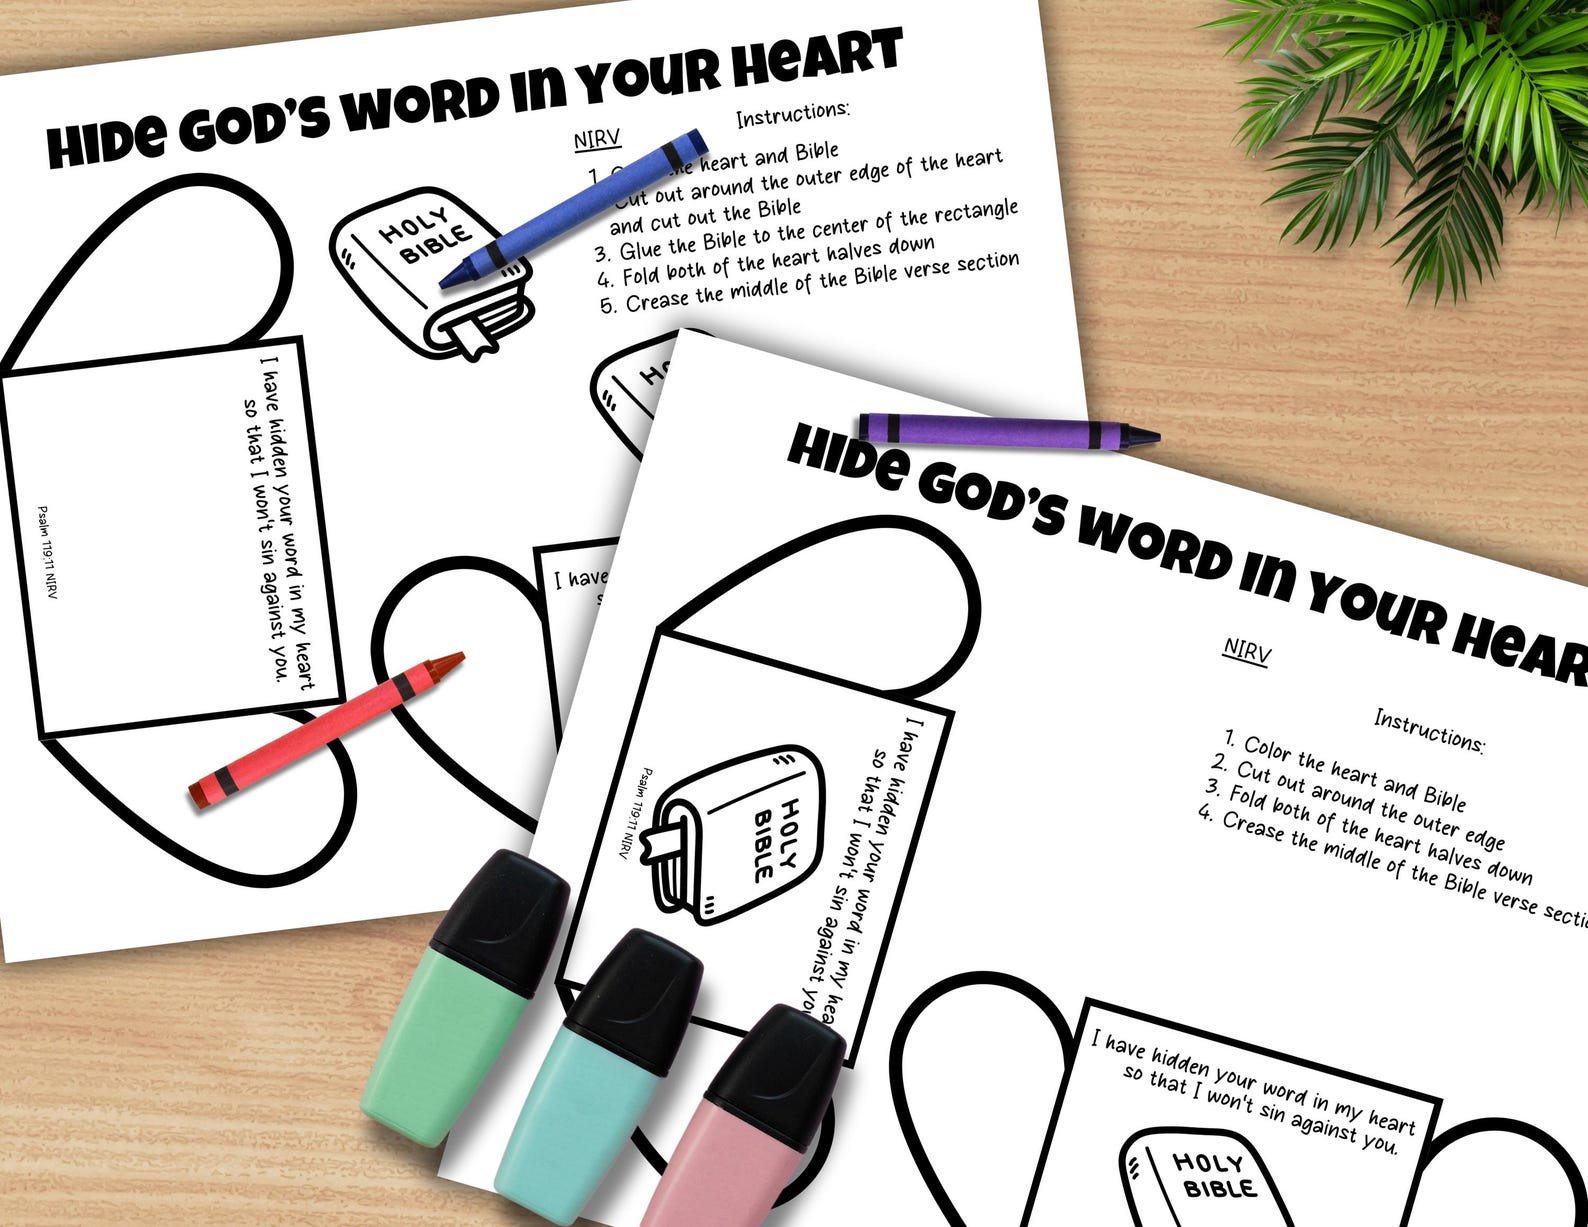 HIDE GOD'S WORD IN YOUR HEART
Instructions:
NIRV
1. the heart and Bible
Cut out around the outer edge of the heart
and cut out the Bible
3. Glue the Bible to the center of the rectangle
4. Fold both of the heart halves down
5. Crease the middle of the Bible verse section
HOLY
BIBLE
I have hidden your word in my heart
so that I won't sin against you.
Psalm 119:11 NIRV
I have
HIDE GOD'S WORD IN YOUR HEAR
NIRV
Instructions:
1. Color the heart and Bible
2. Cut out around the outer edge
3. Fold both of the heart halves down
4. Crease the middle of the Bible verse
I have hidden your word in my
so that I won't sin against
HOLY
BIBLE
Psalm 119:11 NIRV
I have hidden your word in my heart
so that I won't sin against you.
HOLY
BIBLE